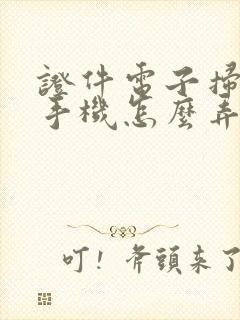 證件電子掃
手機怎麼弄
叮！斧頭來了